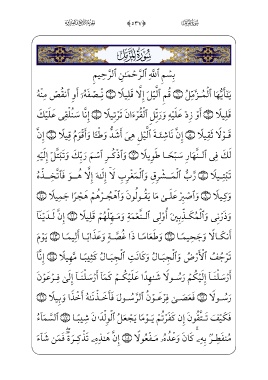 سُورَةُ المُزَّمِّل
بِسْمِ ٱللَّهِ ٱلرَّحْمَـٰنِ ٱلرَّحِيمِ
يَـٰٓأَيُّهَا ٱلْمُزَّمِّلُ ۝ قُمِ ٱلَّيْلَ إِلَّا قَلِيلًا ۝ نِّصْفَهُۥٓ أَوِ ٱنقُصْ مِنْهُ
قَلِيلًا ۝ أَوْ زِدْ عَلَيْهِ وَرَتِّلِ ٱلْقُرْءَانَ تَرْتِيلًا ۝ إِنَّا سَنُلْقِى عَلَيْكَ
قَوْلًا ثَقِيلًا ۝ إِنَّ نَاشِئَةَ ٱلَّيْلِ هِىَ أَشَدُّ وَطْـًٔا وَأَقْوَمُ قِيلًا ۝ إِنَّ
لَكَ فِى ٱلنَّهَارِ سَبْحًا طَوِيلًا ۝ وَٱذْكُرِ ٱسْمَ رَبِّكَ وَتَبَتَّلْ إِلَيْهِ
تَبْتِيلًا ۝ رَّبُّ ٱلْمَشْرِقِ وَٱلْمَغْرِبِ لَآ إِلَـٰهَ إِلَّا هُوَ فَٱتَّخِذْهُ
وَكِيلًا ۝ وَٱصْبِرْ عَلَىٰ مَا يَقُولُونَ وَٱهْجُرْهُمْ هَجْرًا جَمِيلًا ۝
وَذَرْنِى وَٱلْمُكَذِّبِينَ أُو۟لِى ٱلنَّعْمَةِ وَمَهِّلْهُمْ قَلِيلًا ۝ إِنَّ لَدَيْنَآ
أَنكَالًا وَجَحِيمًا ۝ وَطَعَامًا ذَا غُصَّةٍ وَعَذَابًا أَلِيمًا ۝ يَوْمَ
تَرْجُفُ ٱلْأَرْضُ وَٱلْجِبَالُ وَكَانَتِ ٱلْجِبَالُ كَثِيبًا مَّهِيلًا ۝ إِنَّآ
أَرْسَلْنَآ إِلَيْكُمْ رَسُولًا شَـٰهِدًا عَلَيْكُمْ كَمَآ أَرْسَلْنَآ إِلَىٰ فِرْعَوْنَ
رَسُولًا ۝ فَعَصَىٰ فِرْعَوْنُ ٱلرَّسُولَ فَأَخَذْنَـٰهُ أَخْذًا وَبِيلًا ۝
فَكَيْفَ تَتَّقُونَ إِن كَفَرْتُمْ يَوْمًا يَجْعَلُ ٱلْوِلْدَٰنَ شِيبًا ۝ ٱلسَّمَآءُ
مُنفَطِرٌۢ بِهِۦ ۚ كَانَ وَعْدُهُۥ مَفْعُولًا ۝ إِنَّ هَـٰذِهِۦ تَذْكِرَةٌ ۖ فَمَن شَآءَ